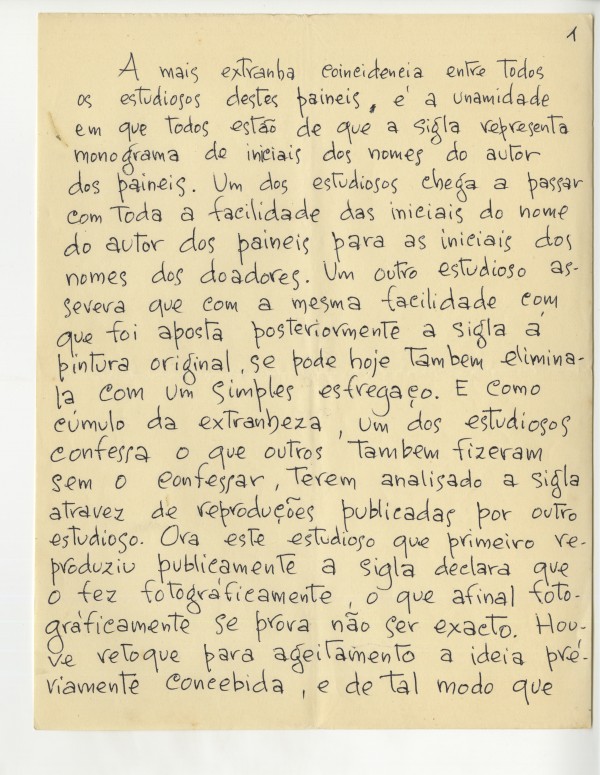 1
A mais extranha coincidencia entre todos
os estudiosos destes paineis, é a unamidade
em que todos estão de que a sigla representa
monograma de iniciais dos nomes do autor
dos paineis. Um dos estudiosos chega a passar
com toda a facilidade das iniciais do nome
do autor dos paineis para as iniciais dos
nomes dos doadores. Um outro estudioso as-
severa que com a mesma facilidade com
que foi aposta posteriormente a sigla á
pintura original, se pode hoje tambem elimina-
la com um simples esfregaço. E como
cúmulo da extranheza, um dos estudiosos
confessa o que outros tambem fizeram
sem o confessar, terem analisado a sigla
atravez de reproduções publicadas por outro
estudioso. Ora este estudioso que primeiro re-
produziu publicamente a sigla declara que
o fez fotográficamente, o que afinal foto-
gráficamente se prova não ser exacto. Hou-
ve retoque para ageitamento a ideia pré-
viamente concebida, e de tal modo que